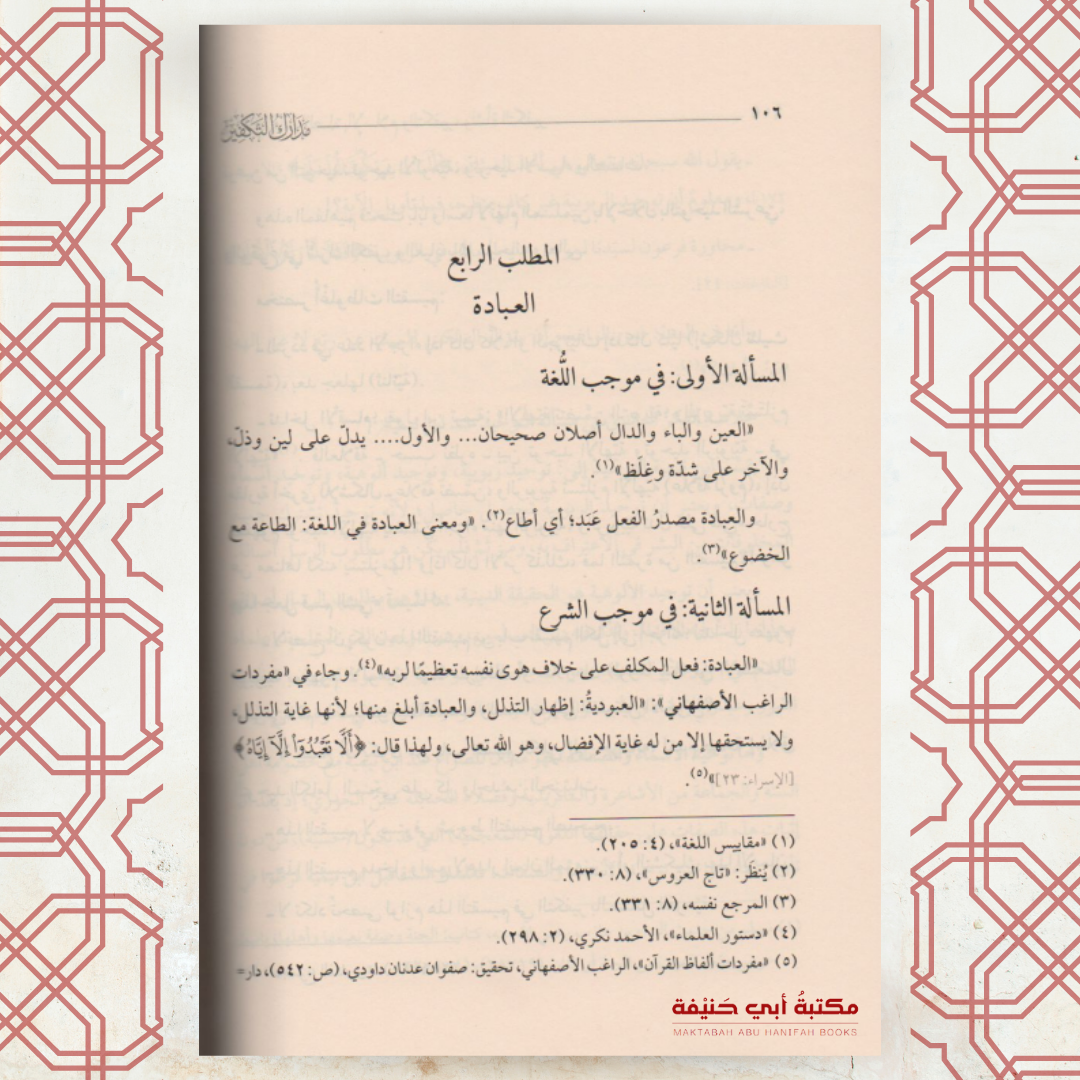 ١٠٦
مدارك التكفير
المطلب الرابع
العبادة
المسألة الأولى: في موجب اللُّغة
«العين والباء والدال أصلان صحيحان... والأول.... يدلّ على لين وذلّ،
والآخر على شدّة وغِلَظ»(١).
والعِبادة مصدرُ الفعل عَبَد؛ أي أطاع(٢). «ومعنى العبادة في اللغة: الطاعة مع
الخضوع»(٣).
المسألة الثانية: في موجب الشرع
«العبادة: فعل المكلف على خلاف هوى نفسه تعظيمًا لربه»(٤). وجاء في «مفردات
الراغب الأصفهاني»: «العبوديةُ: إظهار التذلل، والعبادة أبلغ منها؛ لأنها غاية التذلل،
ولا يستحقها إلا من له غاية الإفضال، وهو الله تعالى، ولهذا قال: ﴿أَلَّا تَعْبُدُوٓا۟ إِلَّآ إِيَّاهُ﴾
[الإسراء: ٢٣]»(٥).
(١) «مقاييس اللغة»، (٤: ٢٠٥).
(٢) يُنظَر: «تاج العروس»، (٨: ٣٣٠).
(٣) المرجع نفسه، (٨: ٣٣١).
(٤) «دستور العلماء»، الأحمد نكري، (٢: ٢٩٨).
(٥) «مفردات ألفاظ القرآن»، الراغب الأصفهاني، تحقيق: صفوان عدنان داودي، (ص: ٥٤٢)، دار=
مكتبةُ أبي حَنيْفة
MAKTABAH ABU HANIFAH BOOKS